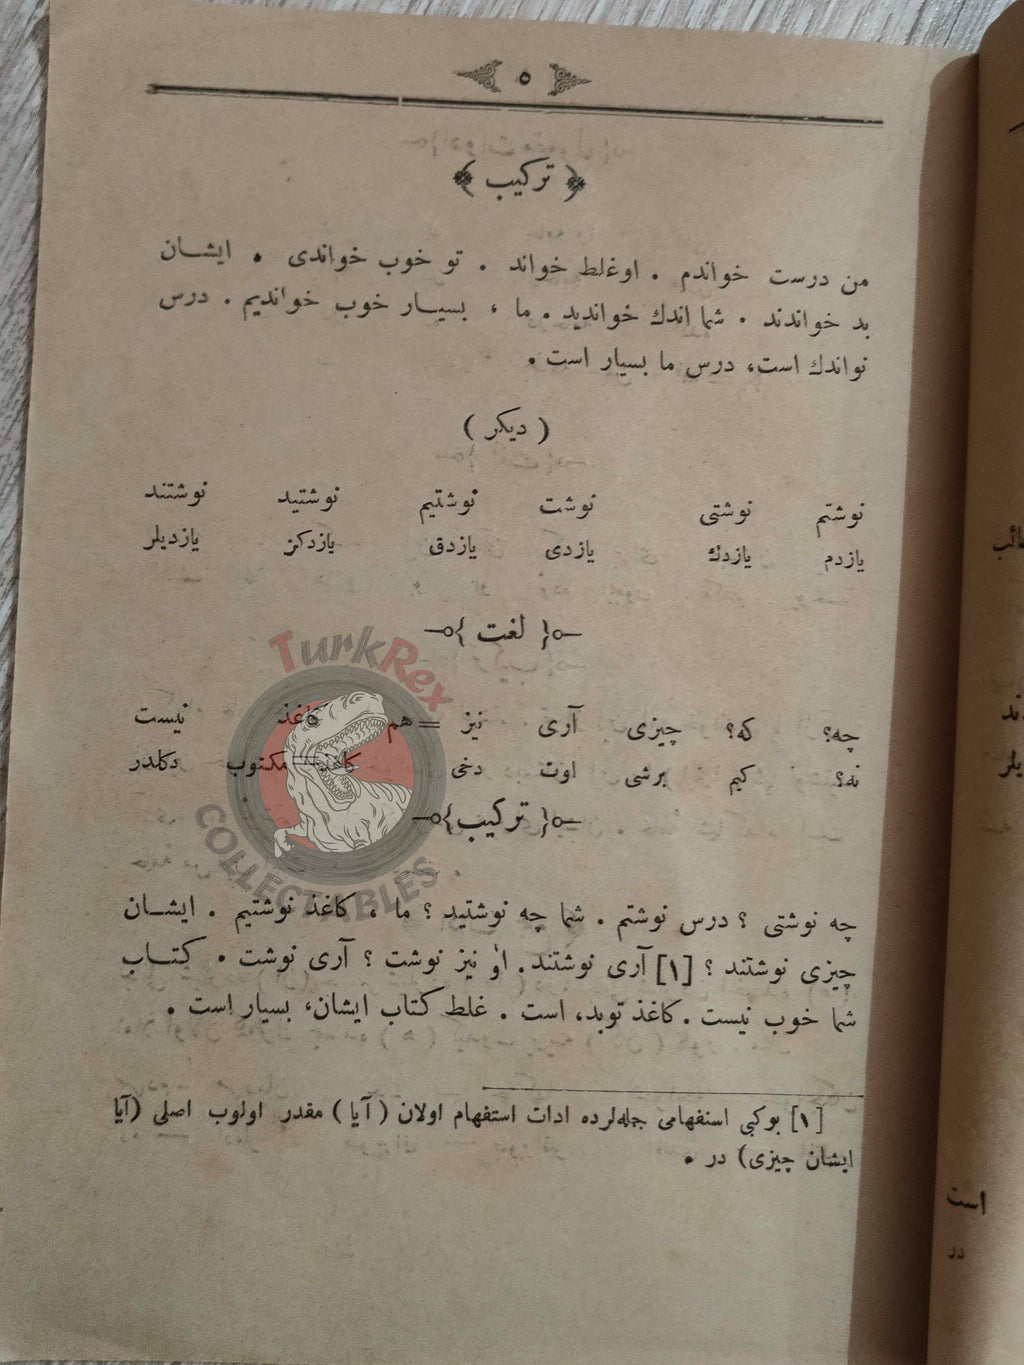 ٥
﴿ تركيب ﴾
من درست خواندم . اوغلط خواند . تو خوب خواندی . ایشــان
بد خواندند . شما اندك خواندید . ما ، بسیــار خوب خواندیم . درس
تواندك است، درس ما بسیار است .
( دیكر )
نوشتم نوشتی نوشت نوشتیم نوشتید نوشتند
یازدم یازدك یازدی یازدق یازدكز یازدیلر
{ لغت }
چه؟ كه؟ چیزی آری نیز = هم كاغذ نیست
نه؟ كیم برشی اوت دخی كاغذ مكتوب دكلدر
{ تركیب }
چه نوشتی ؟ درس نوشتم . شما چه نوشتید ؟ ما ، كاغذ نوشتیم . ایشــان
چیزی نوشتند ؟ [١] آری نوشتند . او نیز نوشت ؟ آری نوشت . كتــاب
شما خوب نیست . كاغذ توبد، است . غلط كتاب ایشان، بسیار است .
[١] بوكبی استفهامی جمله‌لرده ادات استفهام اولان ( آیا ) مقدر اولوب اصلی (آیا
ایشان چیزی) در .
TurkRex
COLLECTABLES
ائب
ند
یلر
است
در